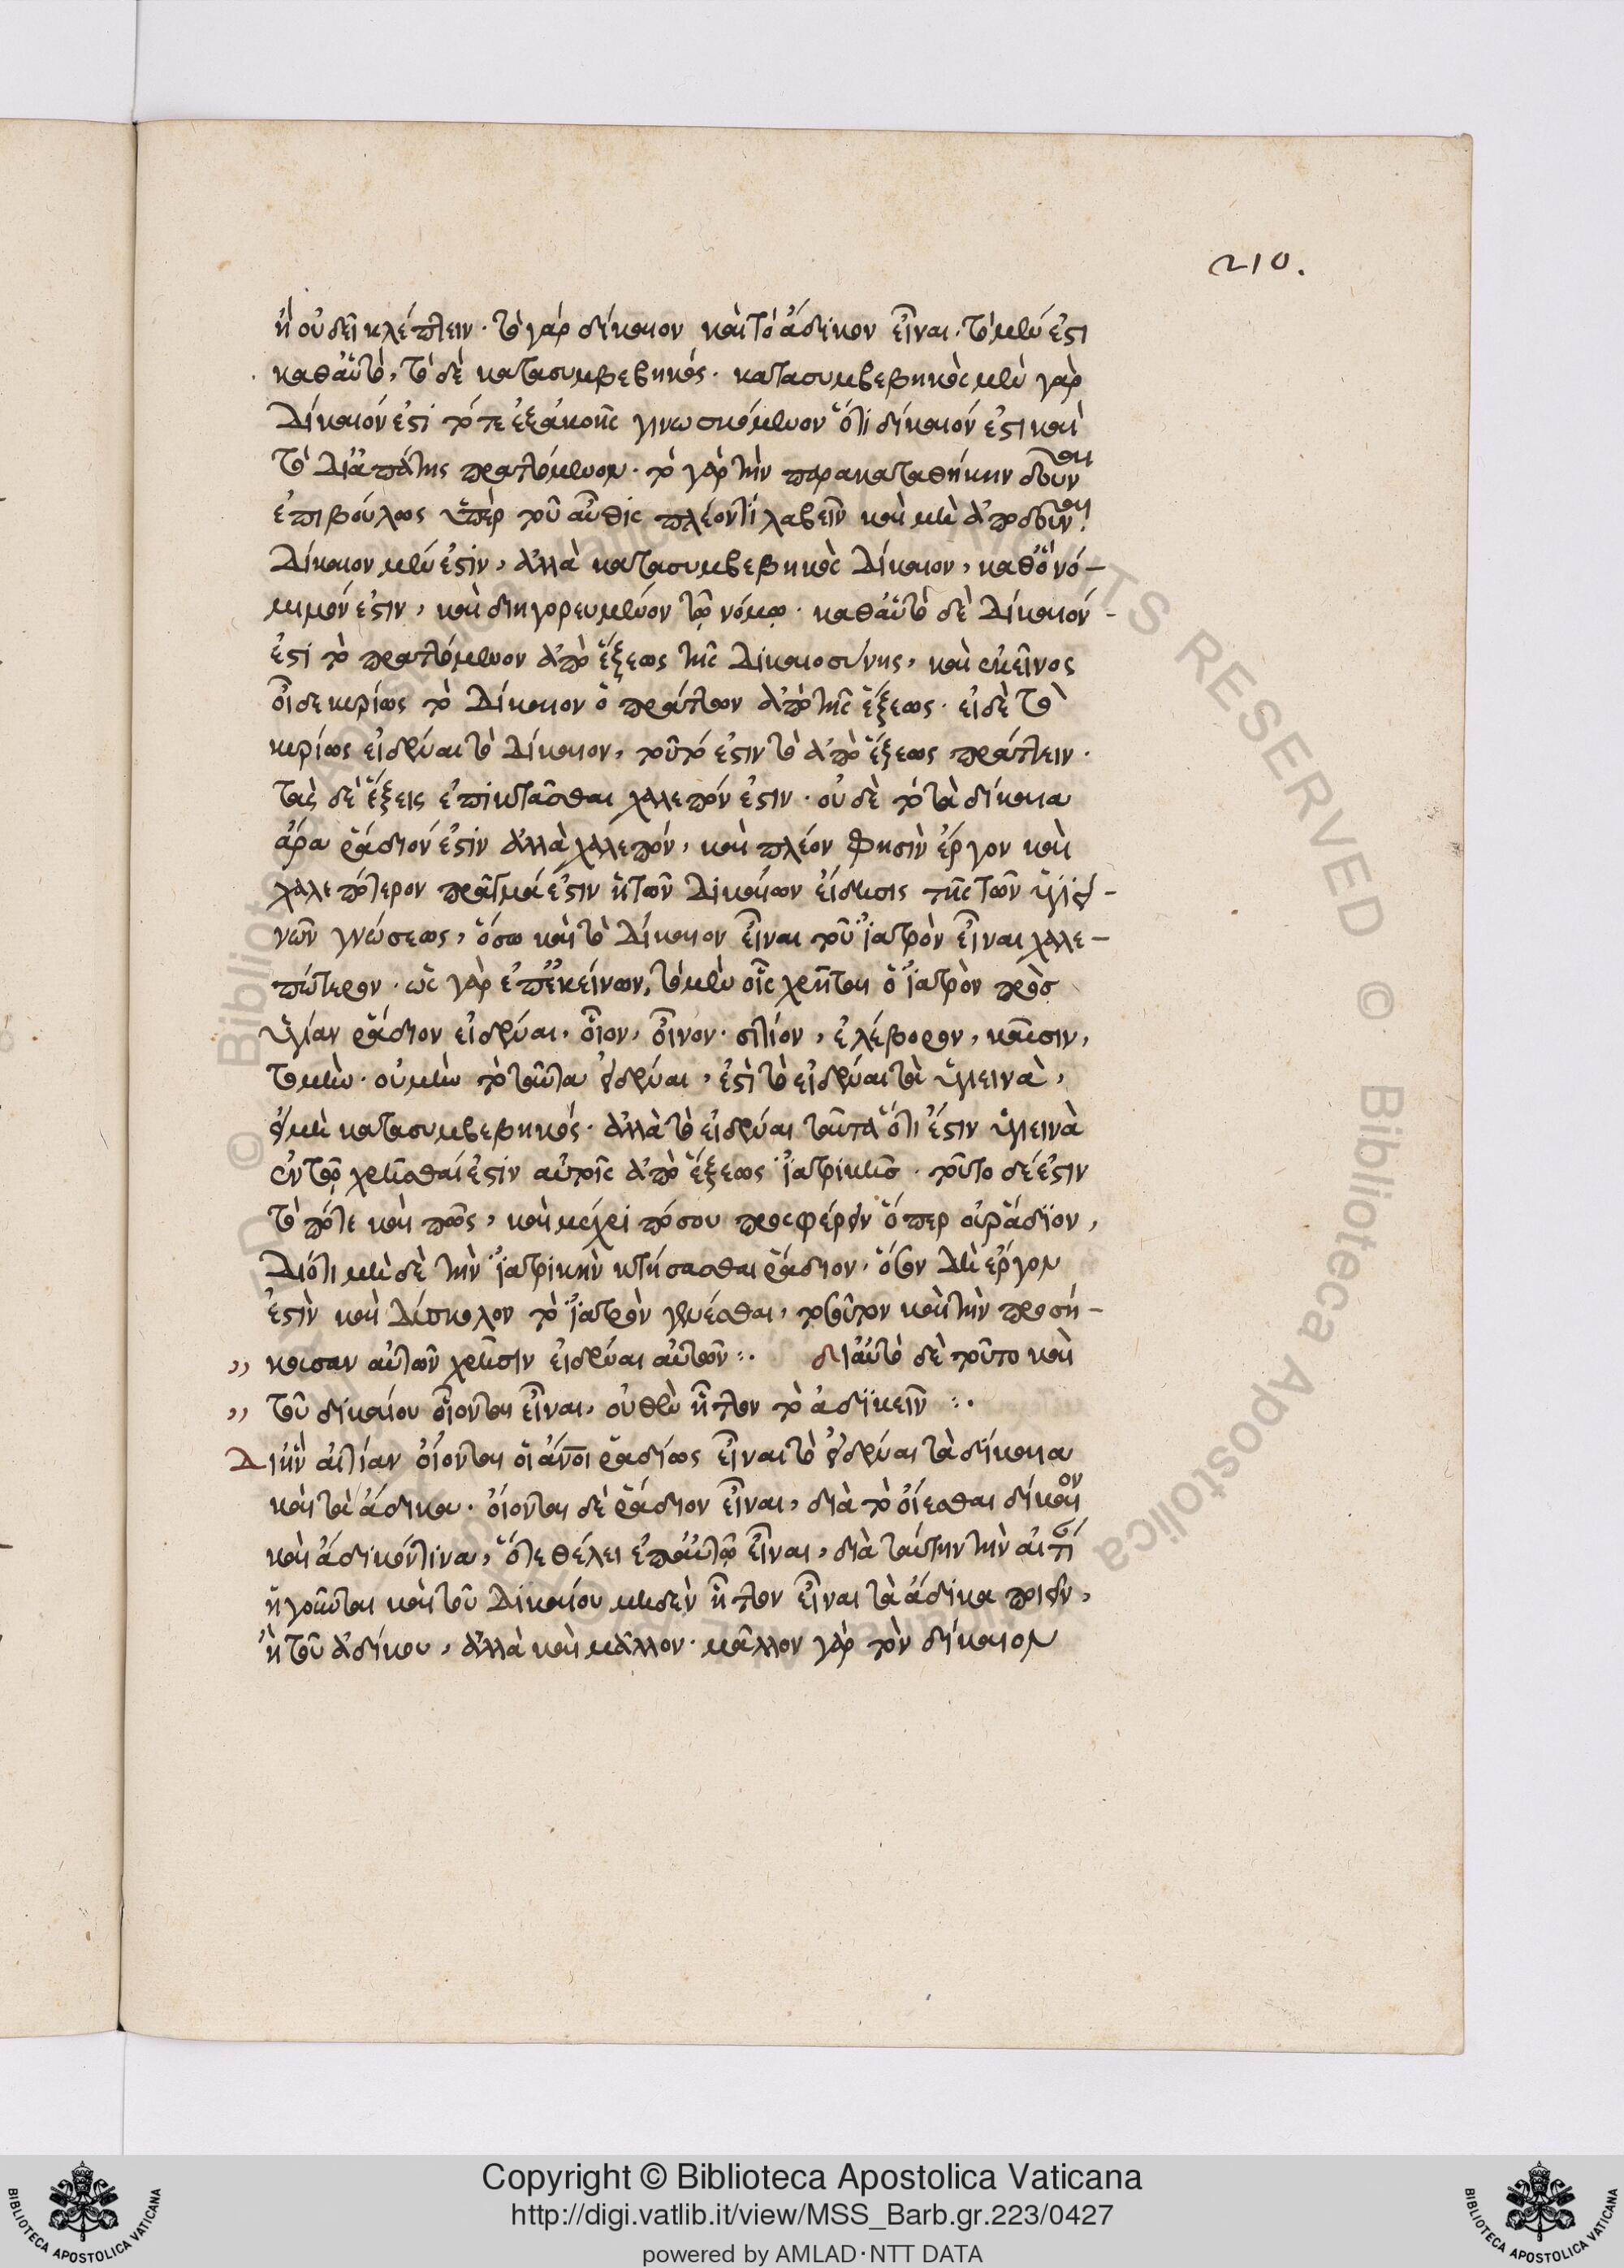 210.
ἢ οὐ δεῖ κλέπτειν· τὸ γὰρ δίκαιον καὶ τὸ ἄδικον εἶναι· τὸ μέν ἐστι
καθ' αὑτὸ, τὸ δὲ κατασυμβεβηκός· κατασυμβεβηκὸς μὲν γὰρ
δίκαιόν ἐστι τό τε ἐξ ἀκοῆς γινωσκόμενον ὅτι δίκαιόν ἐστι καὶ
τὸ δι' ἀπάτης πραττόμενον· τὸ γὰρ τὴν παρακαταθήκην δοῦναι
ἐπιβούλως ὑπὲρ τοῦ αὖθις πλέον τι λαβεῖν καὶ μὴ ἀποδοῦναι,
δίκαιον μέν ἐστιν, ἀλλὰ κατασυμβεβηκὸς δίκαιον, καθὸ νό-
μιμόν ἐστιν, καὶ διηγορευμένον τῷ νόμῳ· καθ' αὑτὸ δὲ δίκαιόν-
ἐστι τὸ πραττόμενον ἀπὸ ἕξεως τῆς δικαιοσύνης, καὶ ἐκεῖνος
οἶδε κυρίως τὸ δίκαιον ὁ πράττων ἀπὸ τῆς ἕξεως· εἰ δὲ τὸ
κυρίως εἰδέναι τὸ δίκαιον, τοῦτό ἐστιν τὸ ἀπὸ ἕξεως πράττειν·
τὰς δὲ ἕξεις ἐπικτᾶσθαι χαλεπόν ἐστιν· οὐδὲ τὸ τὰ δίκαια
ἄρα ῥάδιόν ἐστιν ἀλλὰ χαλεπόν, καὶ πλέον φησὶν ἔργον καὶ
χαλεπότερον πρᾶγμά ἐστιν ἡ τῶν δικαίων εἴδησις τῆς τῶν ὑγιει-
νῶν γνώσεως, ὅσω καὶ τὸ δίκαιον εἶναι τοῦ ἰατρὸν εἶναι χαλε-
πώτερον· ὡς γὰρ ἐπ' ἐκείνων, τὸ μὲν οἷς χρῆται ὁ ἰατρὸν πρὸς
ὑγίαν ῥάδιον εἰδέναι, οἷον, οἶνον· σιτίον, ἐλέβορον, καῦσιν,
τομὴν· οὐ μὴν τὸ ταῦτα εἰδέναι, ἐστὶ τὸ εἰδέναι τὰ ὑγιεινὰ,
εἰ μὴ κατασυμβεβηκός· ἀλλὰ τὸ εἰδέναι ταῦτα ὅτι ἐστιν ὑγιεινὰ
ἐν τῷ χρῆσθαί ἐστιν αὐτοῖς ἀπὸ ἕξεως ἰατρικῆς· τοῦτο δέ ἐστιν
τὸ πότε καὶ πῶς, καὶ μέχρι πόσου προσφέρειν ὅπερ οὐ ῥάδιον,
διότι μὴ δὲ τὴν ἰατρικὴν κτήσασθαι ῥάδιον, ὅσον δὴ ἔργον
ἐστὶν καὶ δύσκολον τὸ ἰατρὸν γενέσθαι, τοσοῦτον καὶ τὴν προσή-
,, κουσαν αὐτῶν χρῆσιν εἰδέναι αὐτῶν :· δι' αὐτὸ δὲ τοῦτο καὶ
,, τοῦ δικαίου οἴονται εἶναι, οὐθὲν ἧττον τὸ ἀδικεῖν :·
Δι' ἣν αἰτίαν οἴονται οἱ ἄνοι ῥαδίως εἶναι τὸ εἰδέναι τὰ δίκαια
καὶ τὰ ἄδικα· οἴονται δὲ ῥάδιον εἶναι, διὰ τὸ οἴεσθαι δίκαιον
καὶ ἄδικόν τινα, ὅτε θέλει ἐπ' αὐτῷ εἶναι, διὰ ταύτην τὴν αἰτί
ἡγοῦνται καὶ τοῦ δικαίου μηδὲν ἧττον εἶναι τὰ ἄδικα ποιεῖν,
ἢ τοῦ ἀδίκου, ἀλλὰ καὶ μᾶλλον· μᾶλλον γὰρ τὸν δίκαιον
© Biblioteca Apostolica Vaticana
ALL RIGHTS RESERVED
Copyright © Biblioteca Apostolica Vaticana
http://digi.vatlib.it/view/MSS_Barb.gr.223/0427
powered by AMLAD·NTT DATA
BIBLIOTECA APOSTOLICA VATICANA
BIBLIOTECA APOSTOLICA VATICANA